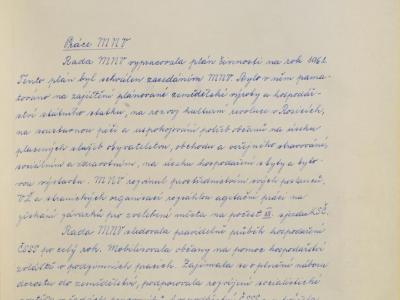 Práce MNV
Rada MNV vypracovala plán činnosti na rok 1961.
Tento plán byl schválen zasedáním MNV. Bylo v něm pama-
továno na zajištění plánované zemědělské výroby a hospodář-
ství státního statku, na rozvoj kulturní revoluce v Rosicích,
na soustavnou péči a uspokojování potřeb občanů na úseku
placených služeb obyvatelstvu, obchodu a veřejného stravování,
sociálním a zdravotním, na úseku hospodaření s byty a byto-
vou výstavbu. MNV rozvinul prostřednictvím svých poslanců,
VŽ a stranických organisací rozsáhlou agitační práci na
získání závazků pro zvelebení města na počest XII. sjezdu KSČ.
Rada MNV sledovala pravidelně průběh hospodaření
ČSSS po celý rok. Mobilisovala občany na pomoc hospodářství
zvláště v podzimních pracích. Zajímala se o plnění náboru
dorostu do zemědělství, podporovala rozvíjení socialistické